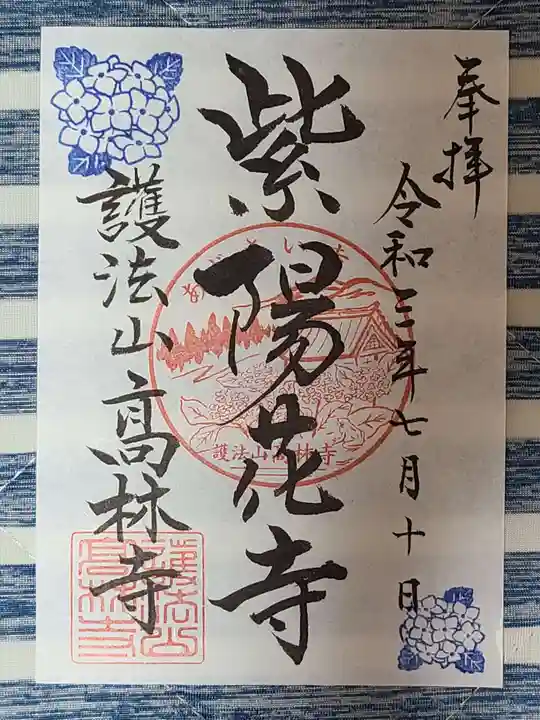 奉拝
令和三年七月十日
紫陽花寺
護法山高林寺
護法山高林寺
護法山高林寺